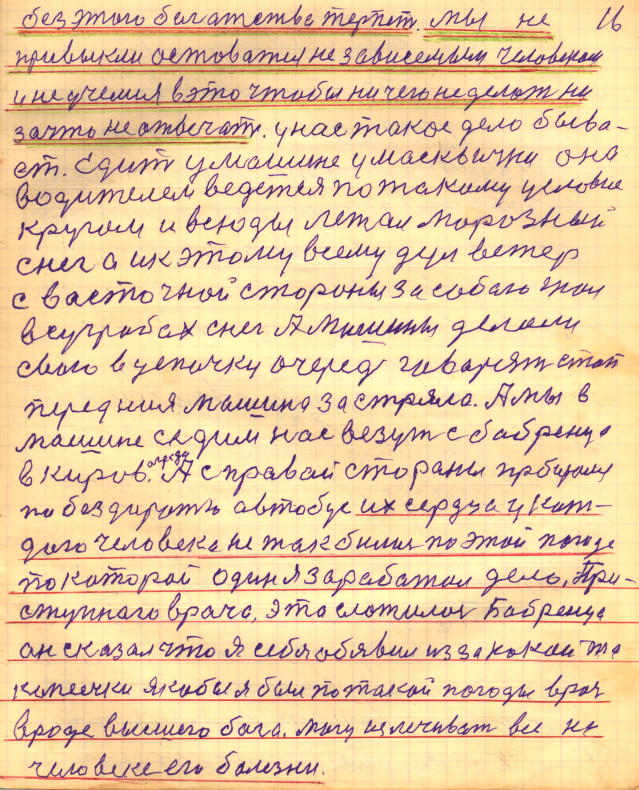 без этого богатства терпет. мы не 16
привыкли остоватися не зависемым человеком
и не учемия в это чтобы ничего не делат ни
зачто не отвечат. у нас такое дело быва-
ет. Едит у машине у масквички она
водителем ведётся по такому условие
кругом и всюды летал морозный
снег а и к этому всему дул ветер
с васточной стороны за собаю гнал
в сугробах снег А машины делали
свою в цепочку очеред говорят стоп
передния машина застряла. А мы в
машине седим нас везут с бабренца
в киров. А с правай стораны
по бездарожю автобус их сердца у каж-
дого человека не так билися по этой погоде
по которой один я зарабатал дело, При-
ступнаго врача, эта сложилось Бабренца
он сказал что я себя обявил из за какой та
капеечки якобы я был по такой погоды врач
вроде высшего бога. могу излечиват все на
человеке его болезни.